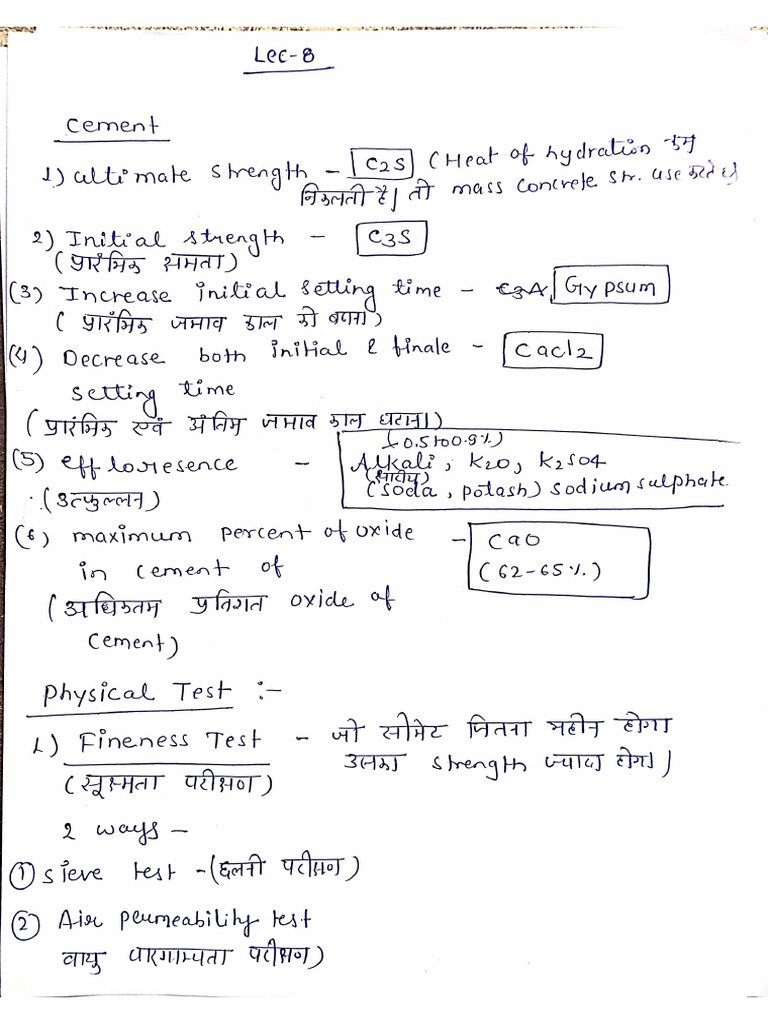 Lec-8
Cement
1) ultimate strength - C2S (Heat of hydration कम
निकलती है। तो mass concrete str. use करते है)
2) Initial strength - C3S
(प्रारंभिक क्षमता)
(3) Increase initial setting time - C3A, Gypsum
( प्रारंभिक जमाव काल को बढ़ाना)
(4) Decrease both initial & finale - Cacl2
setting time
(प्रारंभिक एवं अंतिम जमाव काल घटाना)
(0.5 to 0.9%)
(5) effloresence - Alkali, K2O, K2SO4
(क्षारीय)
(उत्फुल्लन) (soda, potash) sodium sulphate
(6) maximum percent of oxide - CaO
in cement of (62-65%)
(अधिकतम प्रतिशत oxide of
cement)
Physical Test :-
1) Fineness Test - जो सीमेंट जितना महीन होगा
उसका strength ज्यादा होगा।
(सूक्ष्मता परीक्षण)
2 ways -
① Sieve test - (छलनी परीक्षण)
② Air permeability test
वायु पारगाम्यता परीक्षण)